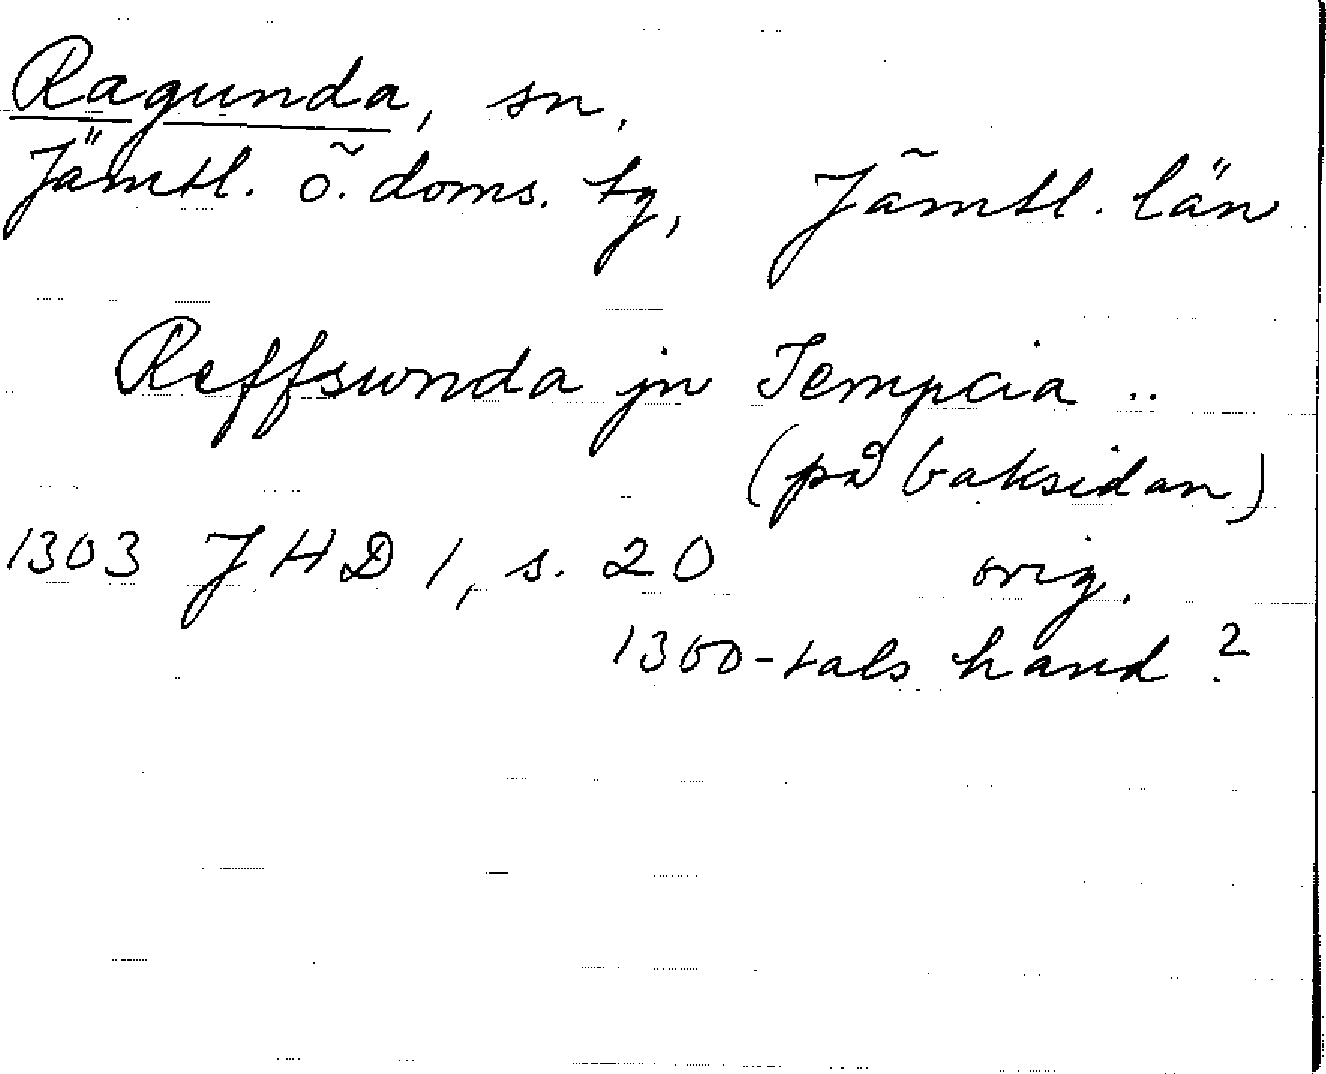 Ragunda, sn,
Jämtl. ö. doms. tg, Jämtl. län
Reffswnda jn Jempcia ..
(på baksidan)
1303 JHD 1, s. 20 orig.
1300-tals hand?